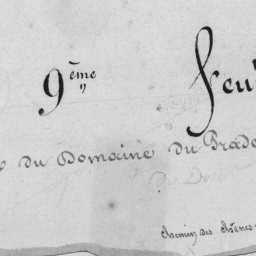 9ème Feu
du Domaine du Prado
chemin des chênes